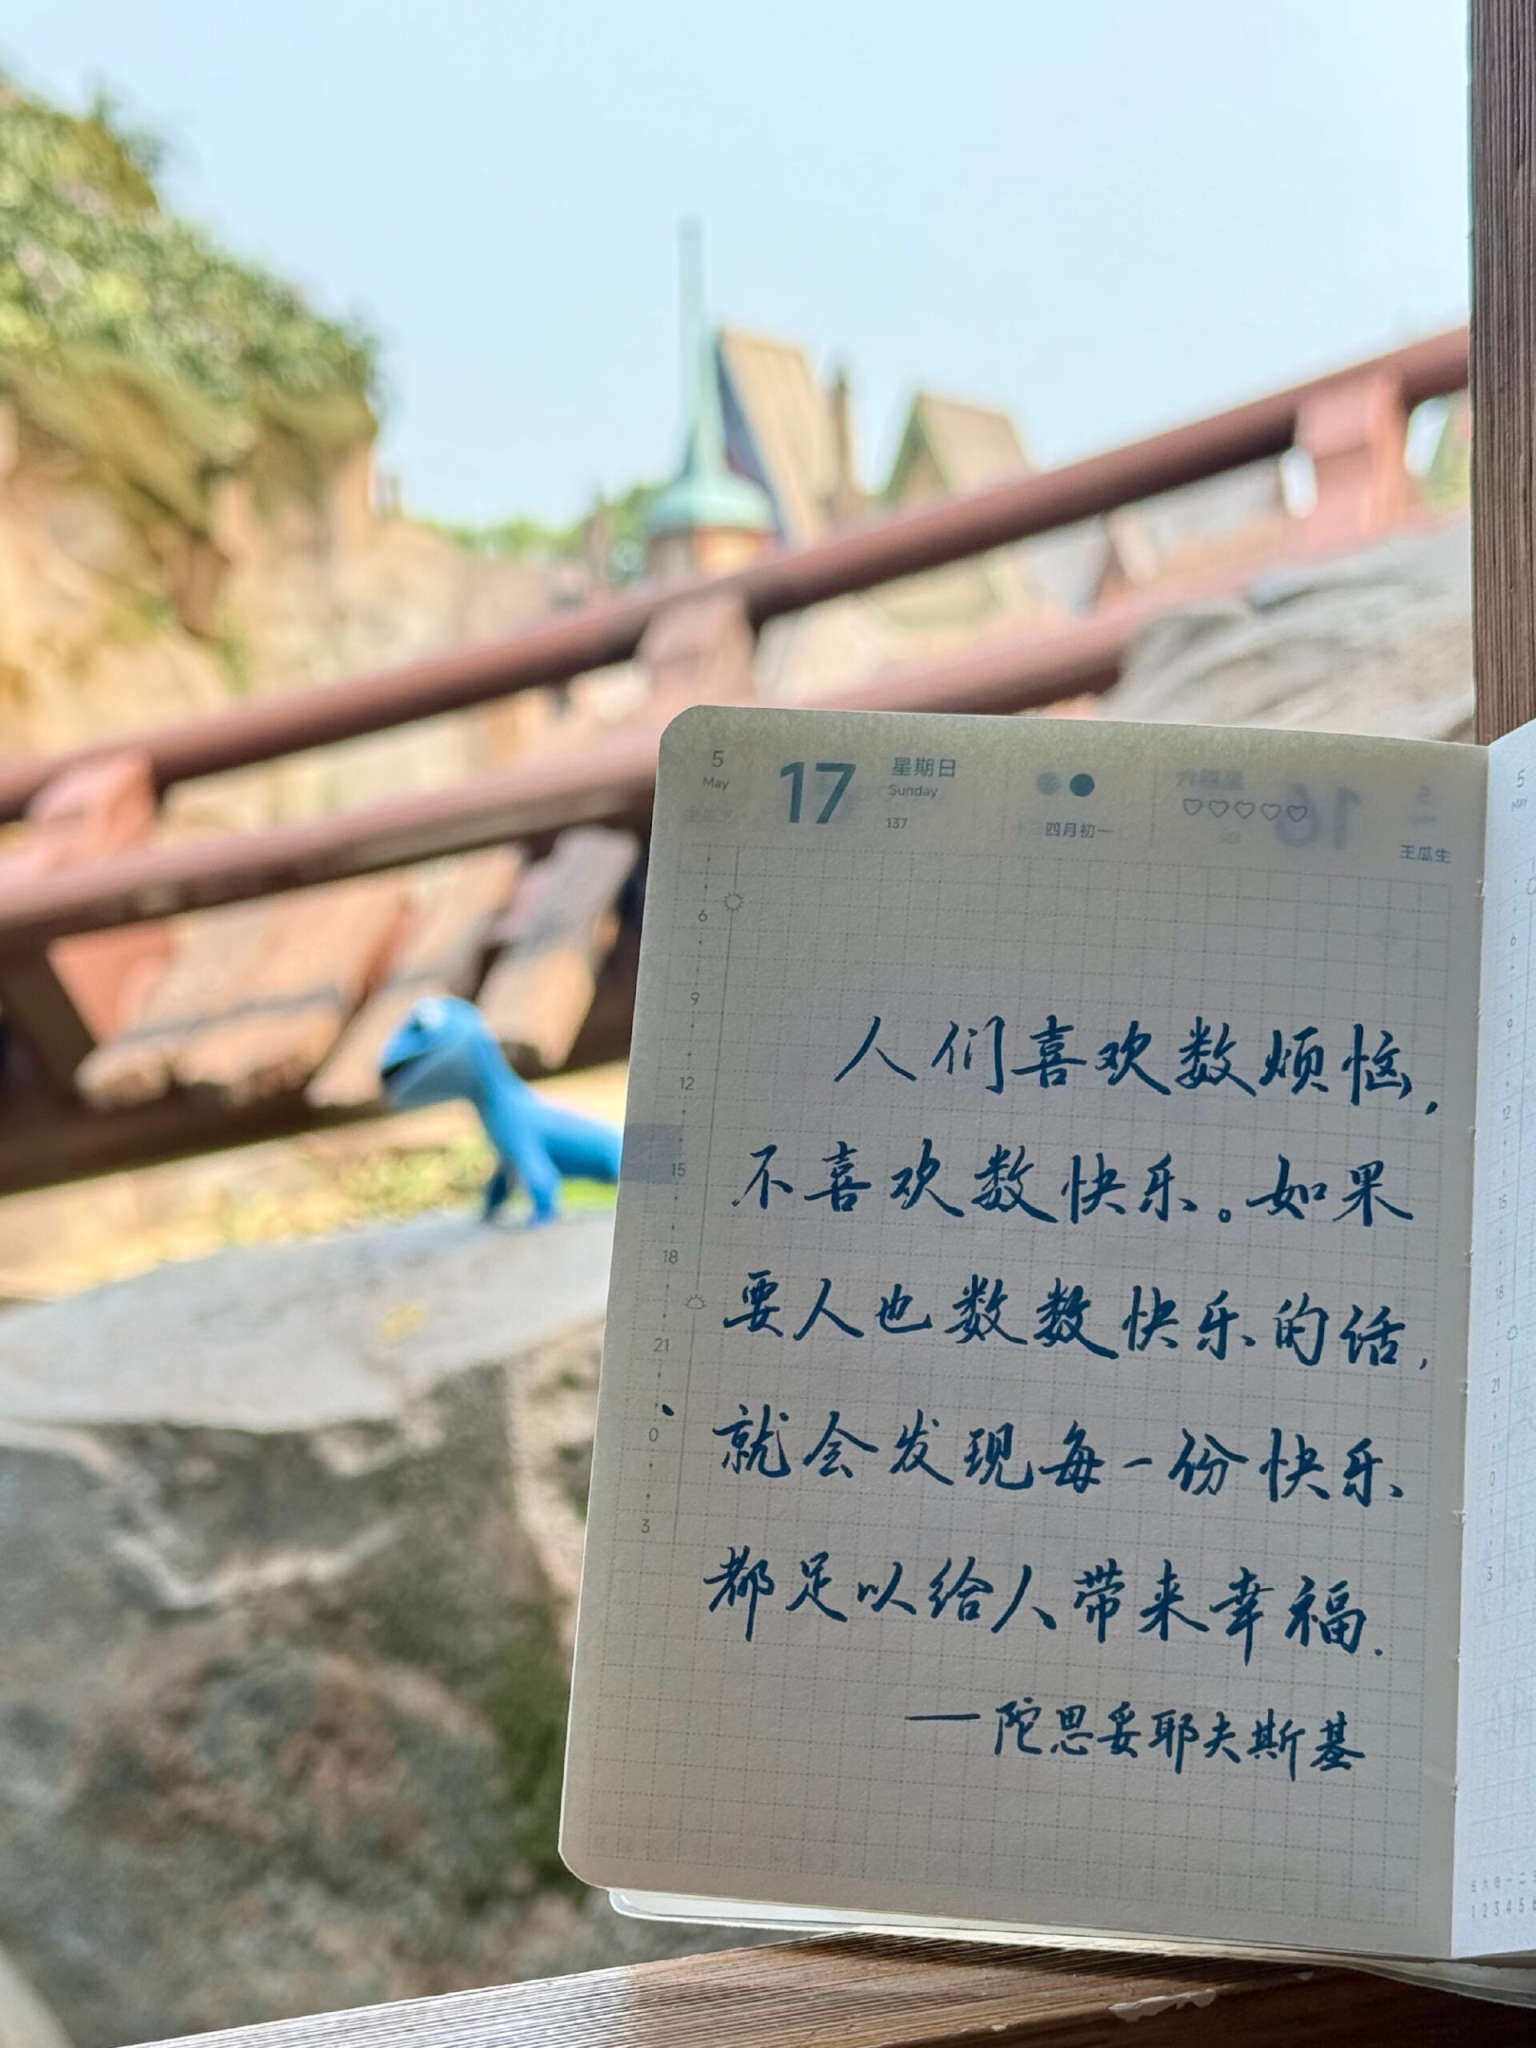 5
May
17
星期日
Sunday
137
四月初一
王瓜生
6
9
12
15
18
21
0
3
人们喜欢数烦恼,
不喜欢数快乐。如果
要人也数数快乐的话,
就会发现每一份快乐
都足以给人带来幸福.
——陀思妥耶夫斯基